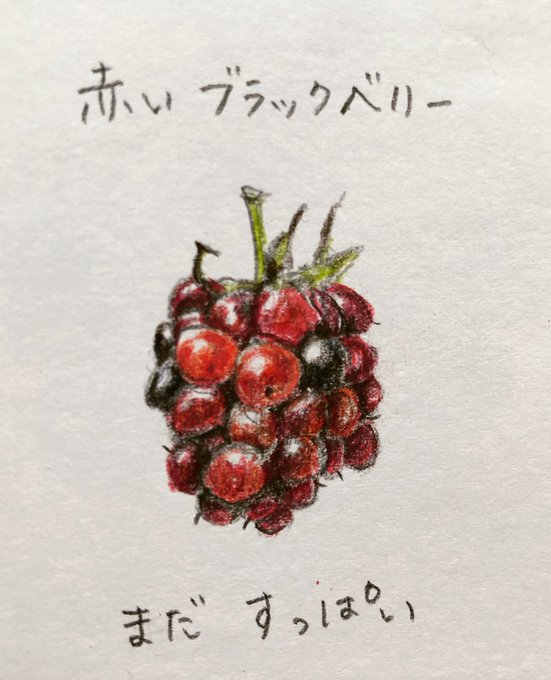 赤い ブラックベリー
まだ すっぱい